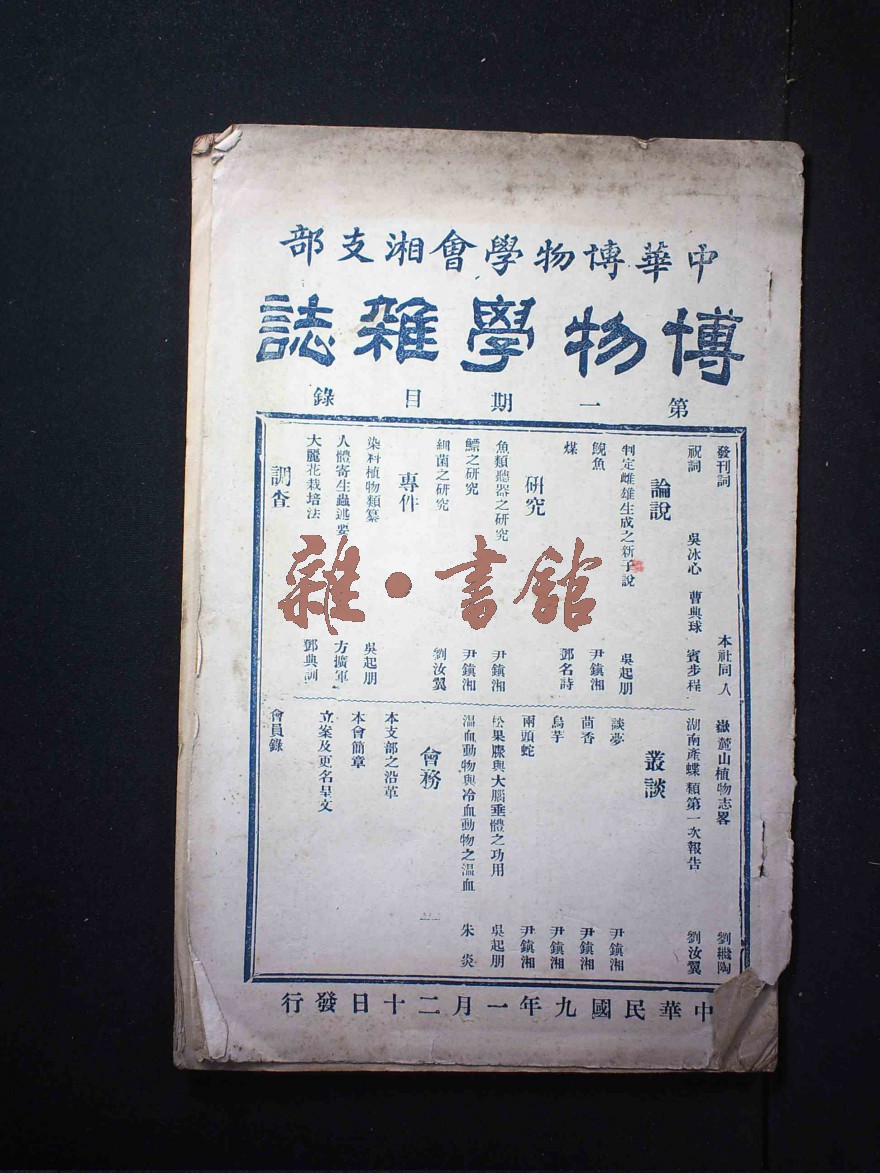 中華博物學會湘支部
博物學雜誌
第一期目錄
發刊詞 本社同人
祝詞 吳冰心 曹典球 賓步程
論說
判定雌雄生成之新學說 吳起朋
鯢魚 尹鎮湘
煤 鄧名詩
研究
魚類聽器之研究 尹鎮湘
鰾之研究 尹鎮湘
細菌之研究 劉汝翼
專件
染料植物類纂 吳起朋
人體寄生蟲述要 方擴軍
大麗花栽培法 鄧典訓
調查
嶽麓山植物志畧 劉磯陶
湖南產蝶類第一次報告 劉汝翼
叢談
談夢 尹鎮湘
茴香 尹鎮湘
烏芋 尹鎮湘
兩頭蛇 尹鎮湘
松果腺與大腦垂體之功用 吳起朋
温血動物與冷血動物之温血 朱炎
會務
本支部之沿革
本會簡章
立案及更名呈文
會員錄
中華民國九年一月二十日發行
雜·書館